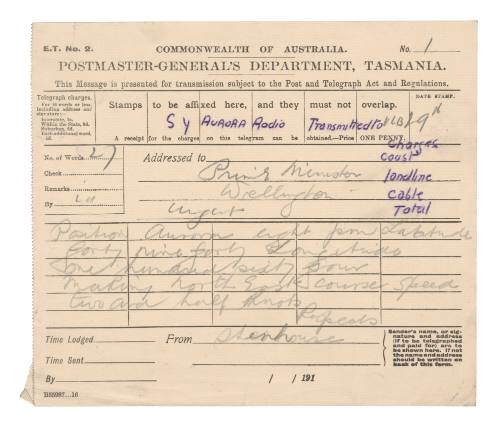 E.T. No. 2.
COMMONWEALTH OF AUSTRALIA.
No. 1
POSTMASTER-GENERAL'S DEPARTMENT, TASMANIA.
This Message is presented for transmission subject to the Post and Telegraph Act and Regulations.
Telegraph charges.
For 16 words or less, including address and signature:—
Interstate, 1s.
Within the State, 9d.
Suburban, 6d.
Each additional word, 1d.
Stamps to be affixed here, and they must not overlap.
DATE STAMP.
Sy AURORA Radio Transmitted to
A receipt for the charges on this telegram can be obtained.—Price ONE PENNY.
No. of Words 27
Check
Remarks
By
Addressed to Prime Minister
Wellington
Urgent
Charges
Coast
landline
Cable
Total
Position Aurora eight pm Latitude
forty nine forty Longitude
One hundred sixty four
Making North East course speed
two and half knots
Repeats
Time Lodged
From Stenhouse
Time Sent
By / / 191
Sender's name, or signature and address (if to be telegraphed and paid for) are to be shown here. If not the name and address should be written on back of this form.
B55987.—16